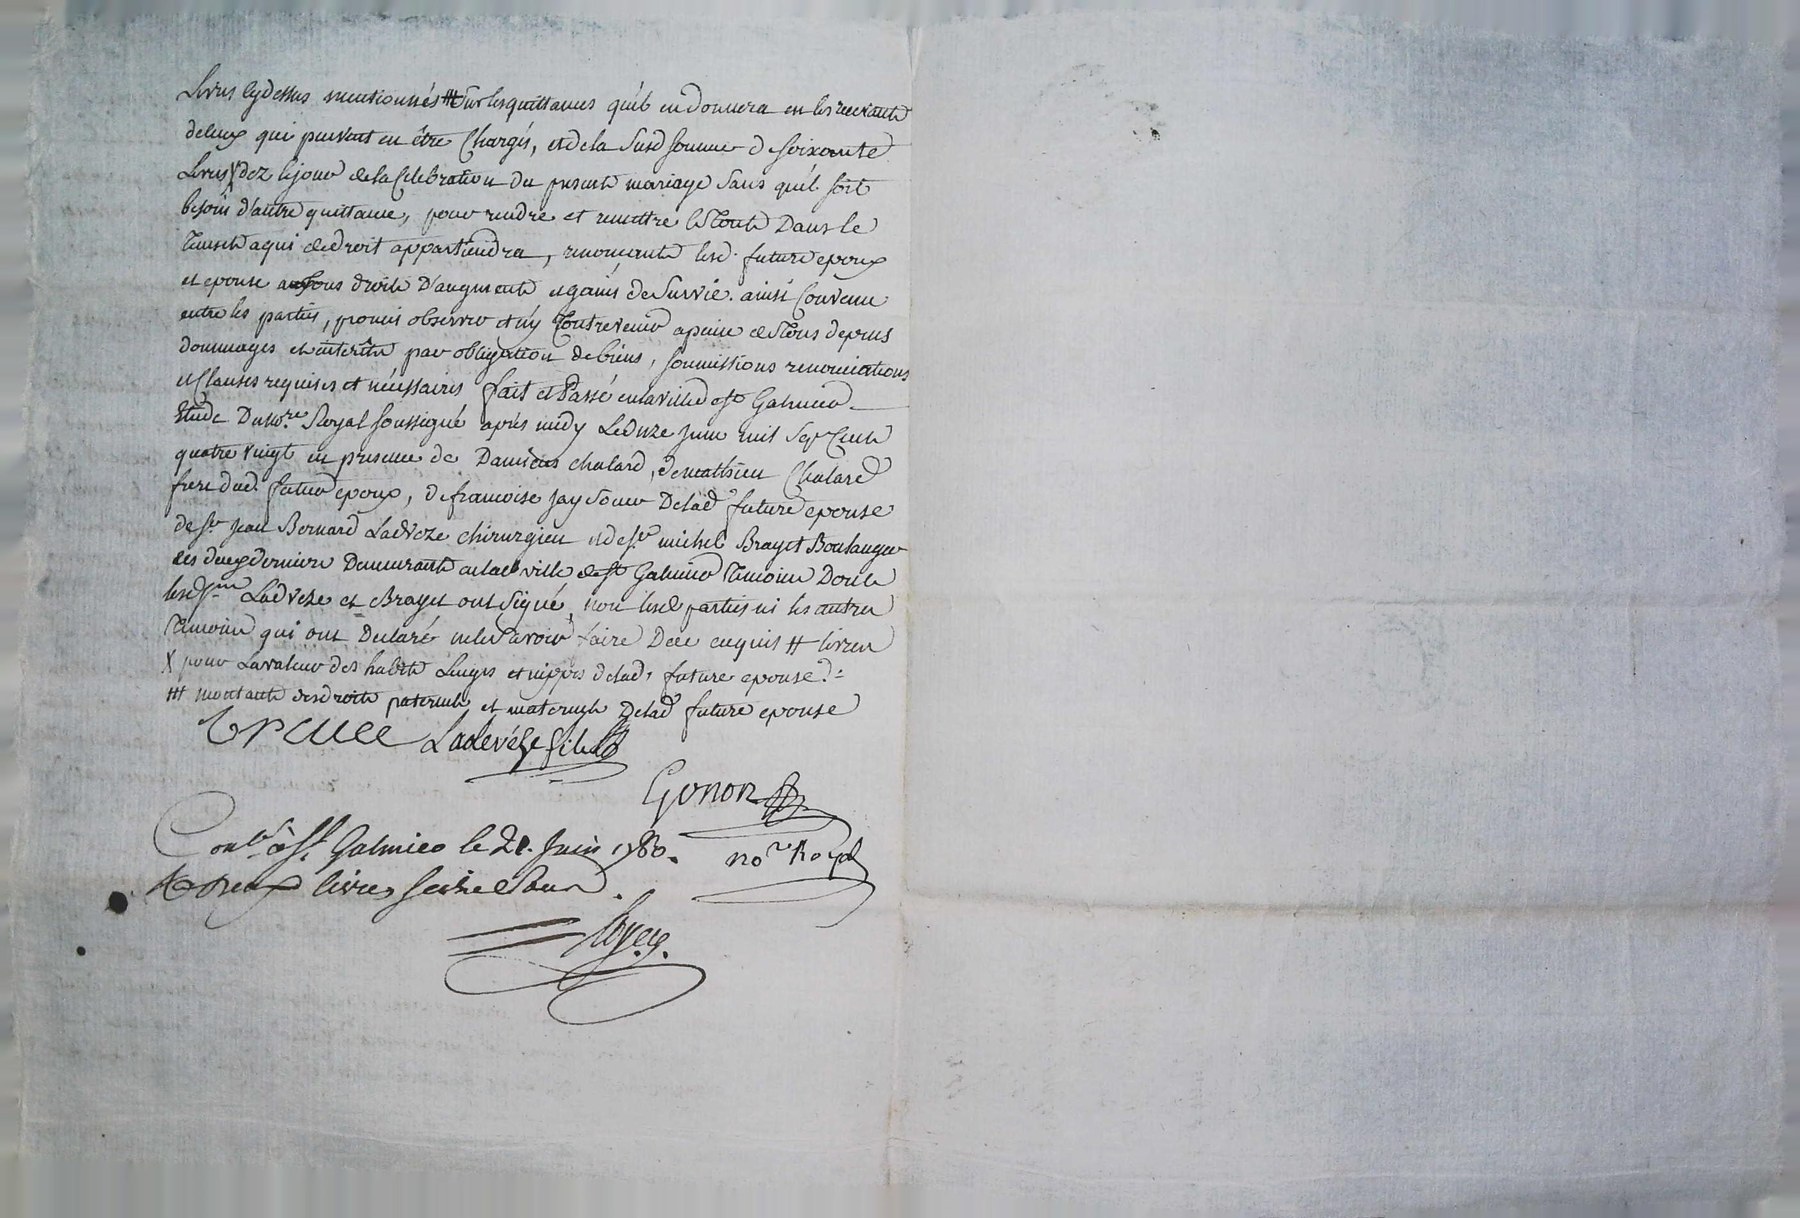 Livres cydessus mentionnés ⧻ Sur les quittances qu'il en donnera en les recevants
de ceux qui peuvent en être Chargés, et de la Susd somme de soixante
Livres X dez le jour de la Celebration du present mariage Sans qu'il soit
besoin d'autre quittance, pour rendre et remettre le Tout Dans le
Tems et a qui de droit appartiendra, renoncants lesd. futurs epoux
et epouse a tous droits D'augments et gains de Survie. ainsi Convenu
entre les parties, promis observer et n'y Contrevenir a peine de Tous depens
dommages et interets par obligation de biens, soumissions renonciations
et Clauses requises et nécessaires fait et Passé en la ville de st Galmier
Etude Du no.re Royal soussigné après midy Le Onze Juin mil Sept Cents
quatre vingt en presence de Damiens chalard, de mathieu Chalard
frere dud. futur epoux, de francoise Jay soeur De lad. future epouse
de sr jean Bernard Ladveze chirurgien et de sr michel Brayet Boulanger
ces deux derniers Demeurants en lad ville de st Galmier Temoins Dont
lesd srs Ladveze et Brayet ont signé, non lesd parties ni les autres
Temoins qui ont Declaré ne le Savoir faire De ce enquis ⧺ livres
X pour La valeur des habits Linges et nippes de lad. future epouse.
⧻ montants des droits paternels et maternels De lad future epouse
Ladevéze fils
Gonon
no.re Royal
Conlé. à St. Galmier le 21. Juin 1780.
Reçu deux livres seize Sous.